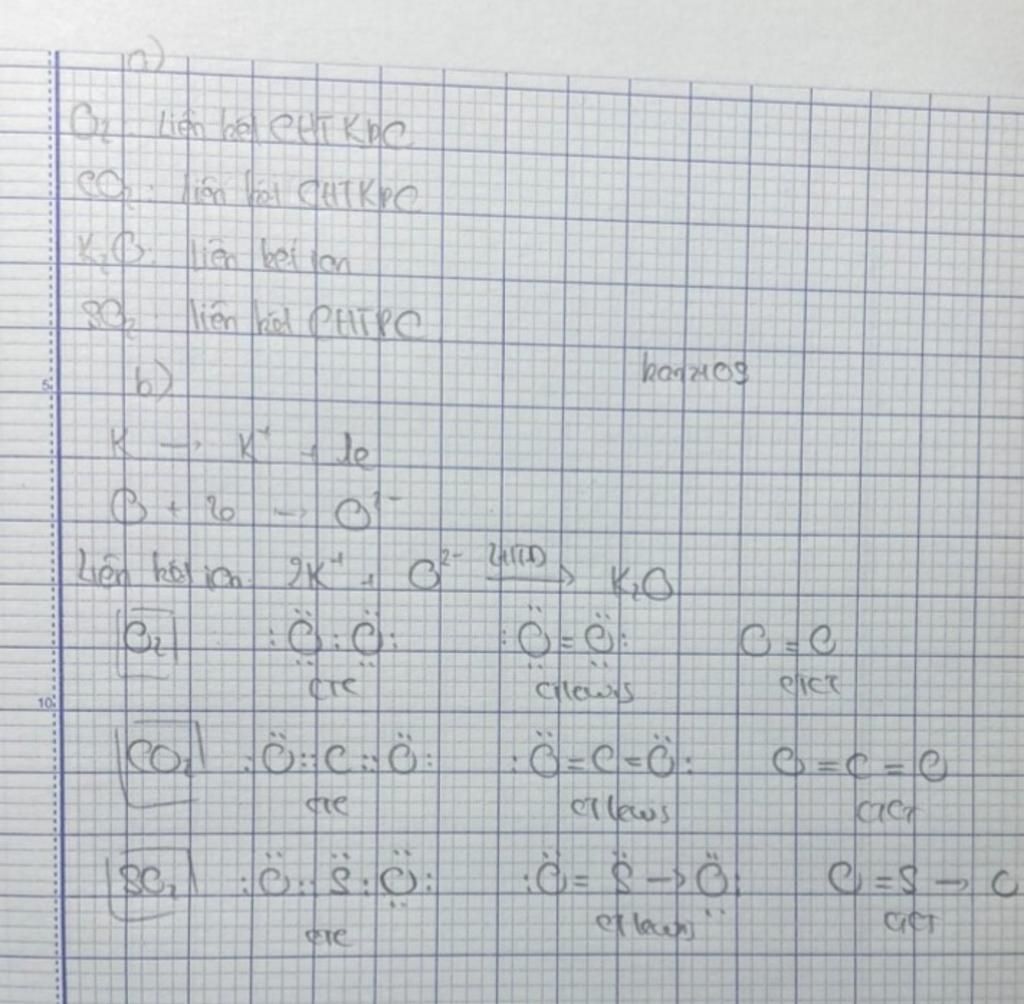 a)
O₂: liên kết CHTKPC
CO₂: liên kết CHTKPC
K₂O: liên kết ion
SO₂: liên kết CHTPC
hoanz109
5
b)
K → K⁺ + 1e
O + 2e → O²⁻
Liên kết ion: 2K⁺ + O²⁻ → K₂O
O₂ :Ö:Ö: :Ö=Ö: O=O
cte ctlewis ctct
10
CO₂ :Ö::C::Ö: :Ö=C=Ö: O=C=O
cte ctlews ctct
SO₂ :Ö::S̈:Ö: :Ö=S̈→Ö: O=S→O
cte ctlewis ctct